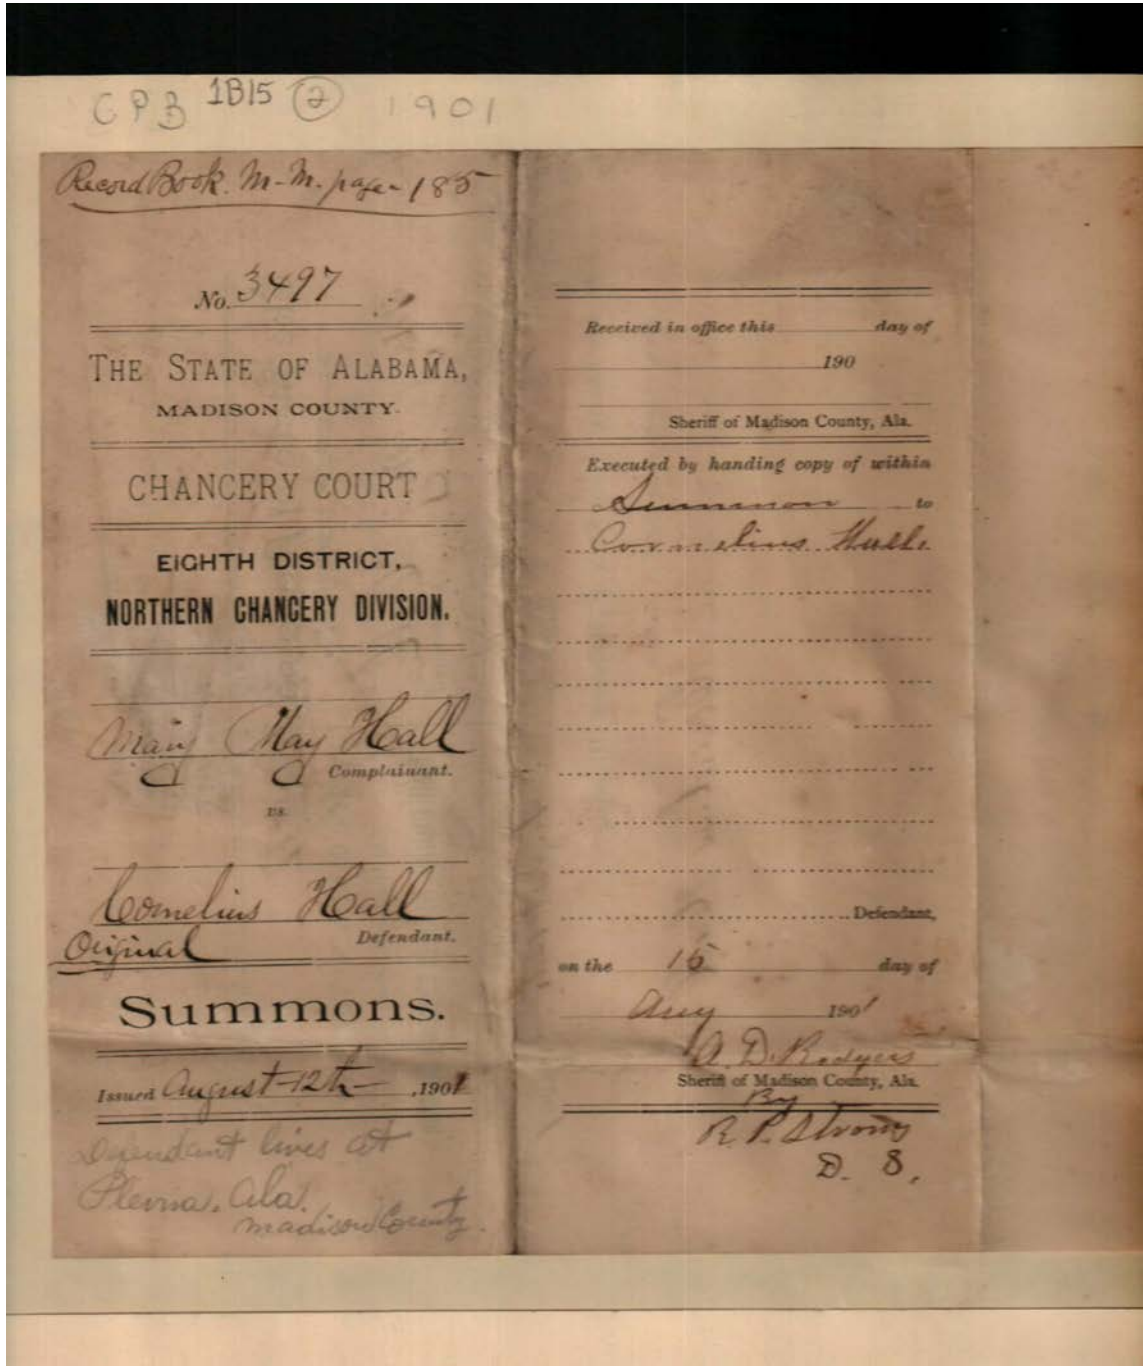 CPB 1B15 2 1901
Record Book. M-M. page- 185
No. 3497
THE STATE OF ALABAMA,
MADISON COUNTY.
CHANCERY COURT
EIGHTH DISTRICT,
NORTHERN CHANCERY DIVISION.
Mary May Hall
Complainant.
vs.
Cornelius Hall
Original Defendant.
Summons.
Issued August 12th ,1901
Defendant lives at
Plevna, Ala.
Madison County.
Received in office this day of
190
Sheriff of Madison County, Ala.
Executed by handing copy of within
Summon to
Cornelius Hall.
Defendant,
on the 15 day of
Aug 1901
A. D. Rodgers
Sheriff of Madison County, Ala.
By
R. P. Strong
D. S.